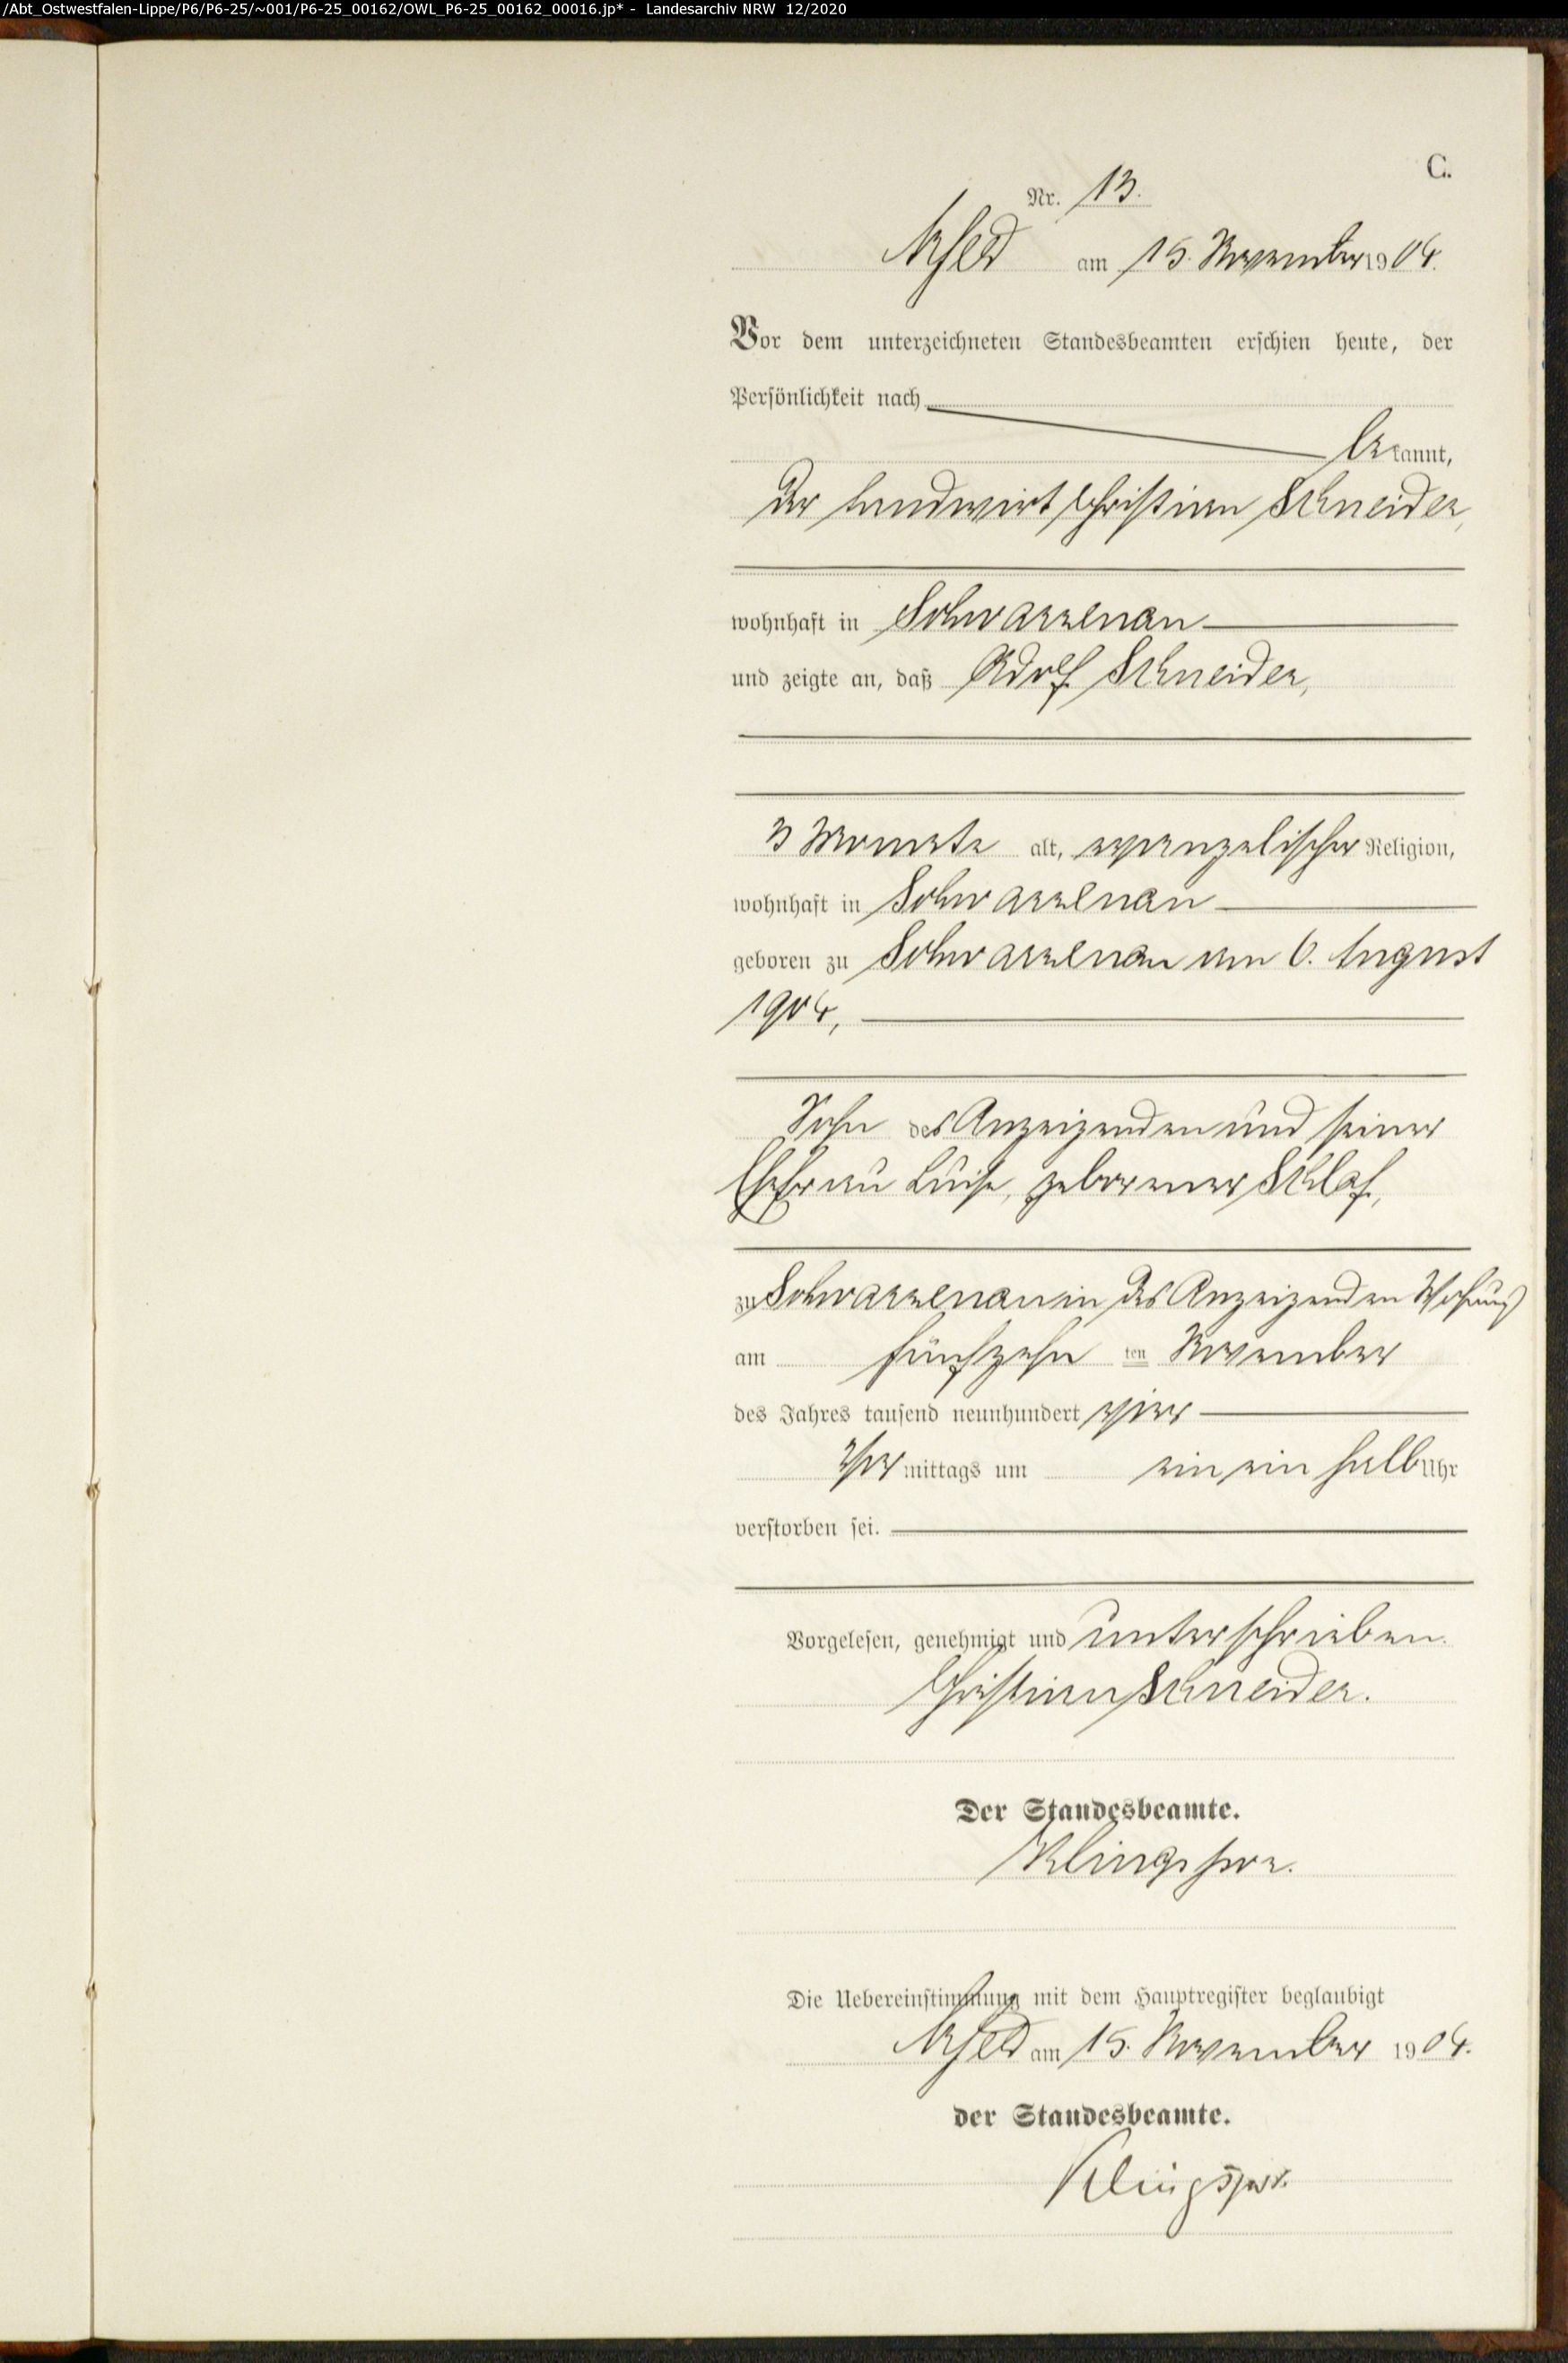 /Abt_Ostwestfalen-Lippe/P6/P6-25/~001/P6-25_00162/OWL_P6-25_00162_00016.jp* - Landesarchiv NRW 12/2020
C.
Nr. 13.
Arfeld am 15. November 1904.
Vor dem unterzeichneten Standesbeamten erschien heute, der
Persönlichkeit nach
bekannt,
der Landwirt Christian Schneider,
wohnhaft in Schwarzenau
und zeigte an, daß Adolf Schneider,
3 Monate alt, evangelischer Religion,
wohnhaft in Schwarzenau
geboren zu Schwarzenau am 6. August
1904,
Sohn des Anzeigenden und seiner
Ehefrau Luise, geborener
zu Schwarzenau in des Anzeigenden Wohnung
am fünfzehn ten November
des Jahres tausend neunhundert vier
Vor mittags um ein ein halb Uhr
verstorben sei.
Vorgelesen, genehmigt und unterschrieben.
Christian Schneider.
Der Standesbeamte.
Klingspor.
Die Uebereinstimmung mit dem Hauptregister beglaubigt
Arfeld am 15. November 1904.
der Standesbeamte.
Klingspor.